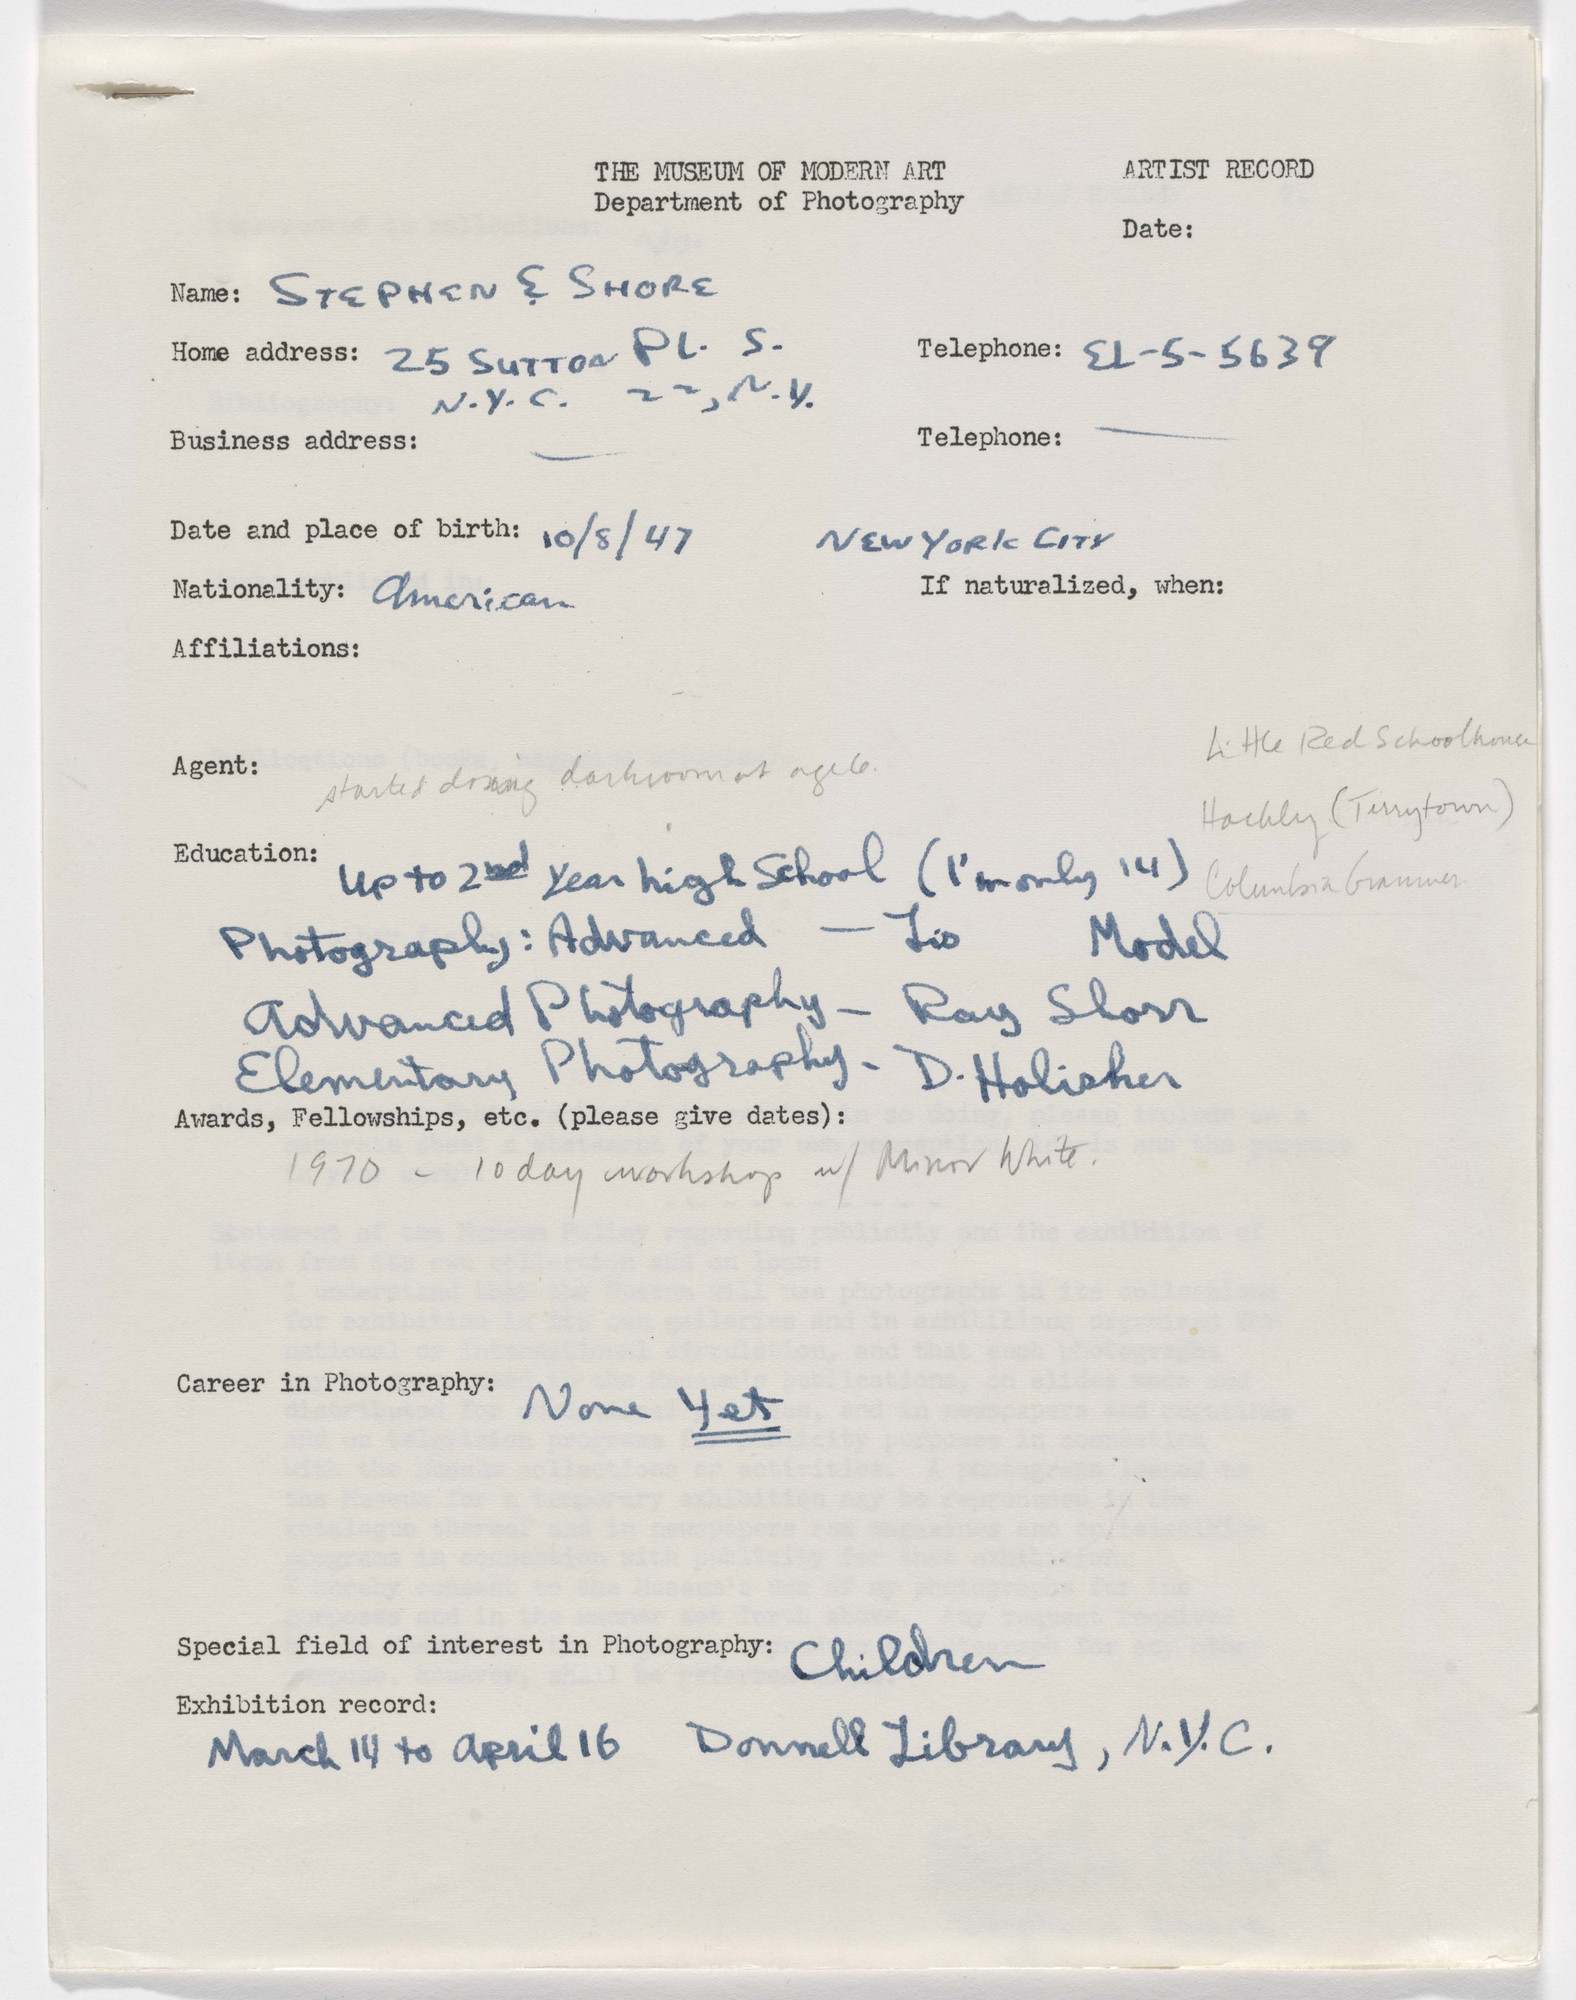 THE MUSEUM OF MODERN ART
ARTIST RECORD
Department of Photography
Date:
Name: STEPHEN E SHORE
Home address: 25 SUTTON PL. S.
Telephone: EL-5-5639
N.Y.C. 22, N.Y.
Business address: —
Telephone: —
Date and place of birth: 10/8/47 NEW YORK CITY
Nationality: American
If naturalized, when:
Affiliations:
Little Red Schoolhouse
Agent:
started doing darkroom at age 6.
Hackley (Terrytown)
Education: Up to 2nd Year high School (I'm only 14)
Columbia Grammer
Photography: Advanced — Lis Model
Advanced Photography - Ray Shorr
Elementary Photography - D. Holisher
Awards, Fellowships, etc. (please give dates):
1970 - 10 day workshop w/ Minor White.
Career in Photography: None Yet
Special field of interest in Photography: Children
Exhibition record:
March 14 to April 16 Donnell Library, N.Y.C.